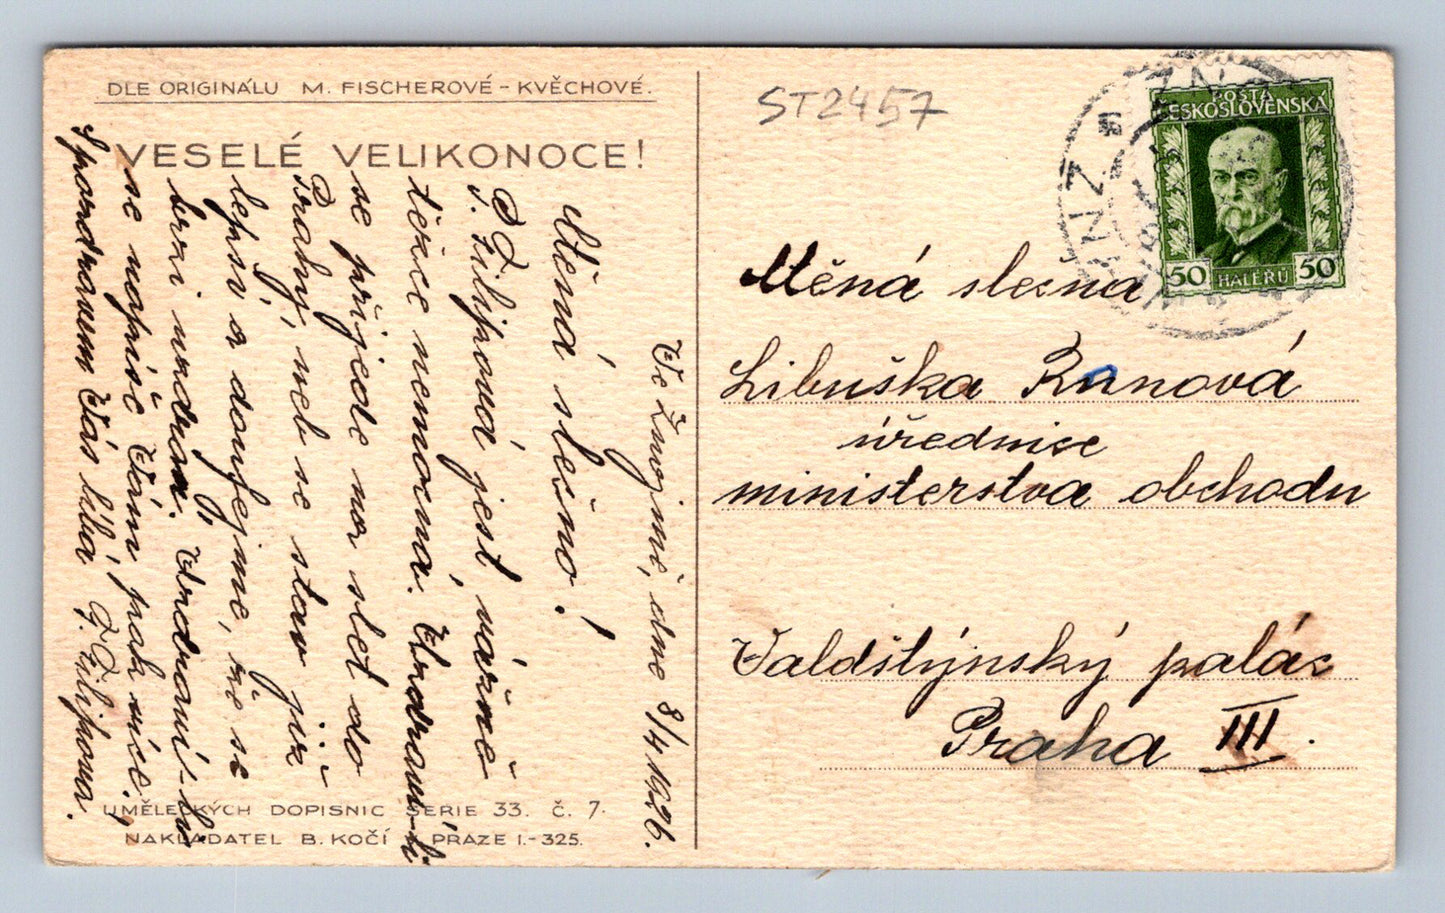 DLE ORIGINÁLU M. FISCHEROVÉ - KVĚCHOVÉ.
VESELÉ VELIKONOCE!
Ve Znojmě, dne 8/4 1926.
Ctěná slečno!
F. Filipová jest vážně
těžce nemocná. Uzdraví-li
se přijede na slet do
Prahy, neb se stav již
lepší a doufejme, že se
brzi uzdraví. Uzdraví-li
se napíše Vám pak více.
S pozdravem Vás líbá F. Filipova.
UMĚLECKÝCH DOPISNIC SERIE 33. Č. 7.
NAKLADATEL B. KOČÍ PRAZE I.-325.
ST2457
POSTA
ČESKOSLOVENSKÁ
50 HALÉRU 50
ZNOJ
ZNAIM
Ctěná slečna
Libuška
úřednice
ministerstva obchodu
Valdštýnský palác
Praha III.